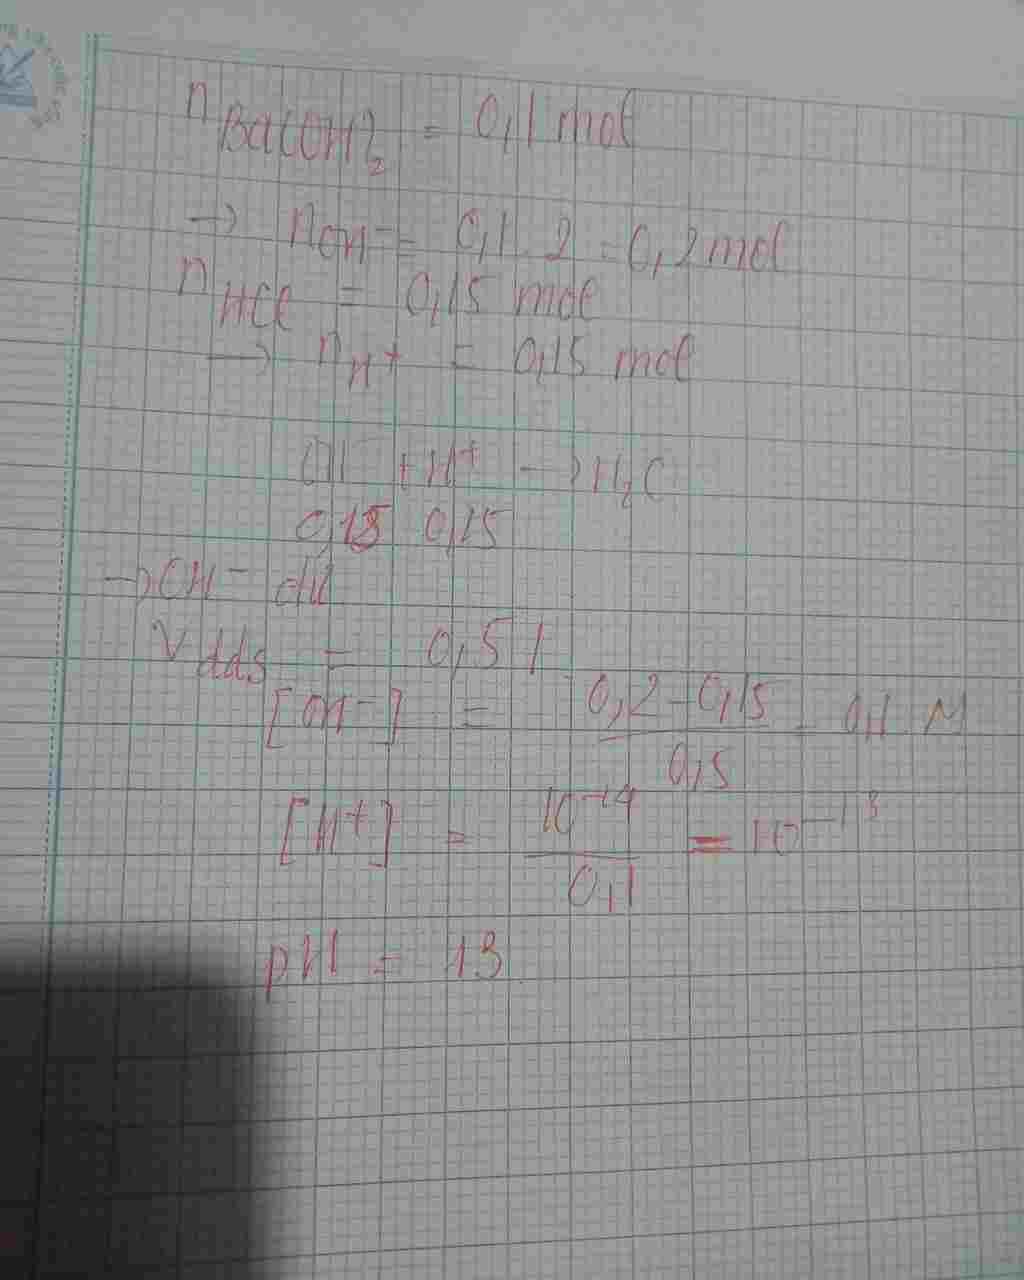 nBa(OH)₂ = 0,1 mol
→ nOH⁻ = 0,1.2 = 0,2 mol
nHCl = 0,15 mol
→ nH⁺ = 0,15 mol
OH⁻ + H⁺ → H₂O
0,15 0,15
→ OH⁻ dư
Vdds = 0,5 l
[OH⁻] = (0,2 - 0,15)/0,5 = 0,1 M
[H⁺] = 10⁻¹⁴/0,1 = 10⁻¹³
pH = 13